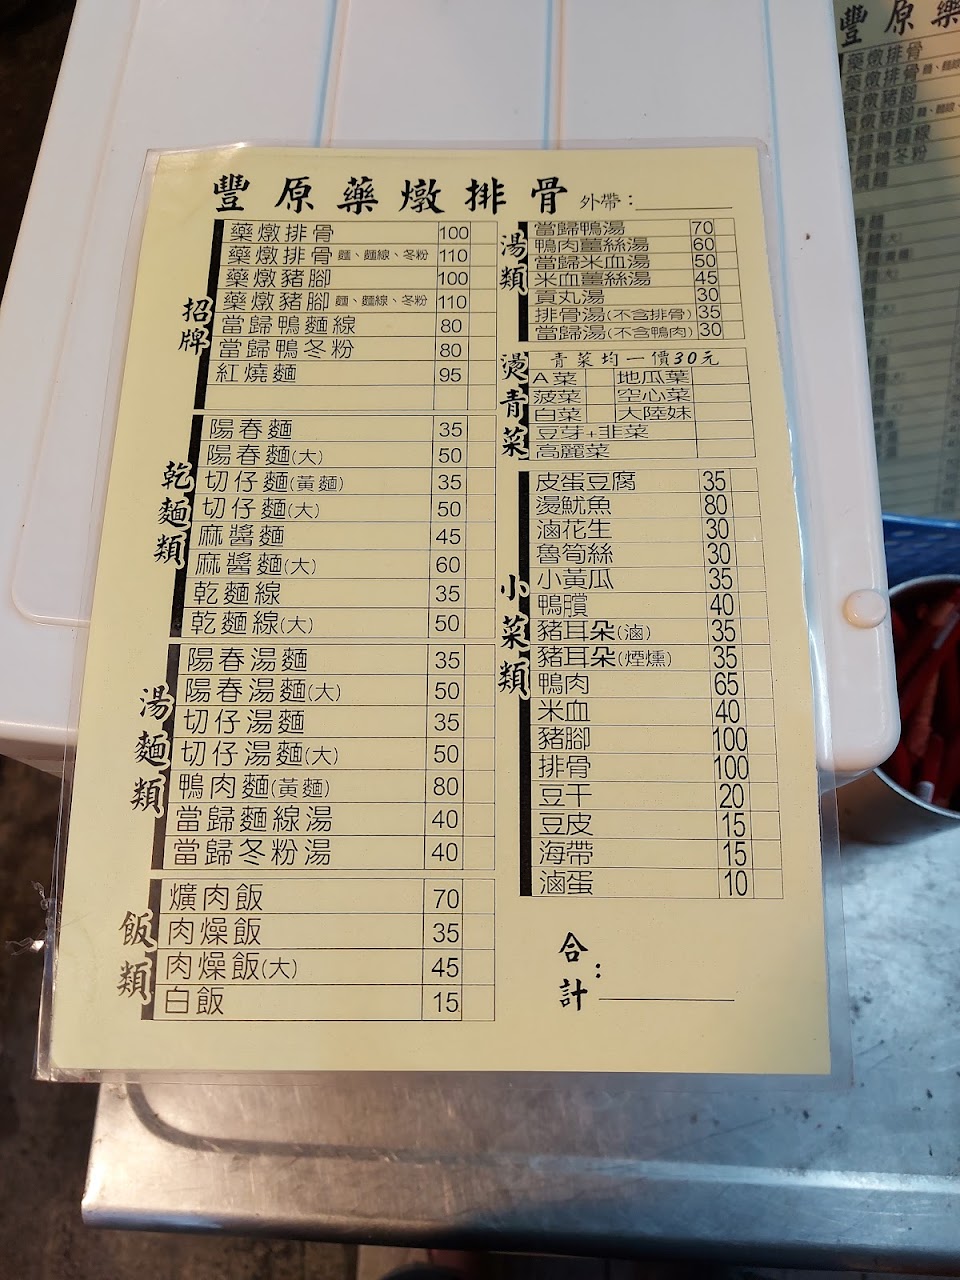 豐原藥燉排骨 外帶：
招牌
藥燉排骨 100
藥燉排骨 麵、麵線、冬粉 110
藥燉豬腳 100
藥燉豬腳 麵、麵線、冬粉 110
當歸鴨麵線 80
當歸鴨冬粉 80
紅燒麵 95
乾麵類
陽春麵 35
陽春麵(大) 50
切仔麵(黃麵) 35
切仔麵(大) 50
麻醬麵 45
麻醬麵(大) 60
乾麵線 35
乾麵線(大) 50
湯麵類
陽春湯麵 35
陽春湯麵(大) 50
切仔湯麵 35
切仔湯麵(大) 50
鴨肉麵(黃麵) 80
當歸麵線湯 40
當歸冬粉湯 40
飯類
爌肉飯 70
肉燥飯 35
肉燥飯(大) 45
白飯 15
湯類
當歸鴨湯 70
鴨肉薑絲湯 60
當歸米血湯 50
米血薑絲湯 45
貢丸湯 30
排骨湯(不含排骨) 35
當歸湯(不含鴨肉) 30
燙青菜
青菜均一價30元
A菜 地瓜葉
菠菜 空心菜
白菜 大陸妹
豆芽+韭菜
高麗菜
小菜類
皮蛋豆腐 35
燙魷魚 80
滷花生 30
魯筍絲 30
小黃瓜 35
鴨臏 40
豬耳朵(滷) 35
豬耳朵(煙燻) 35
鴨肉 65
米血 40
豬腳 100
排骨 100
豆干 20
豆皮 15
海帶 15
滷蛋 10
合計：
豐原藥
藥燉排骨
藥燉排骨
燉豬腳
燉豬腳
歸鴨麵線
歸鴨冬粉
燒麵